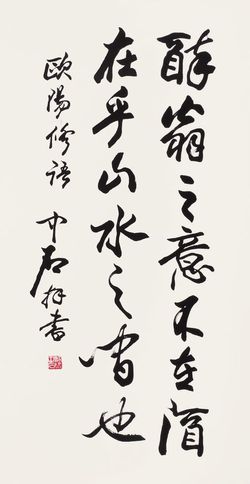 醉翁之意不在酒
在乎山水之間也
歐陽修語 中石拜書